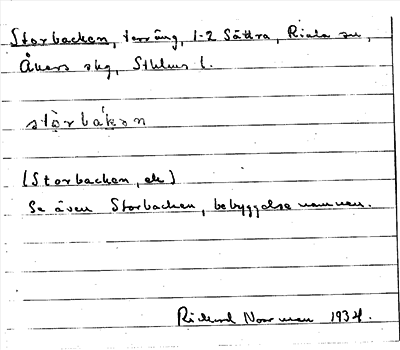 Storbacken, terräng, 1-2 Sättra, Riala sn,
Åkers skg, Sthlms l.
stòrbákən
(Storbacken, ek)
Se även Storbacken, bebyggelsenamnen.
Rickard Norrman 1934.